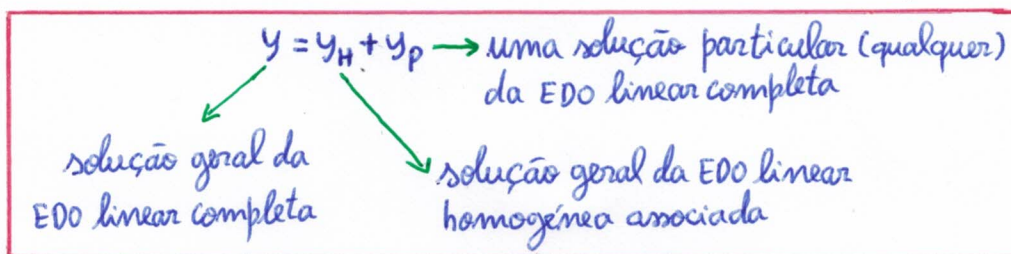 y = y_H + y_P → uma solução particular (qualquer)
da EDO linear completa
solução geral da
EDO linear completa
solução geral da EDO linear
homogénea associada